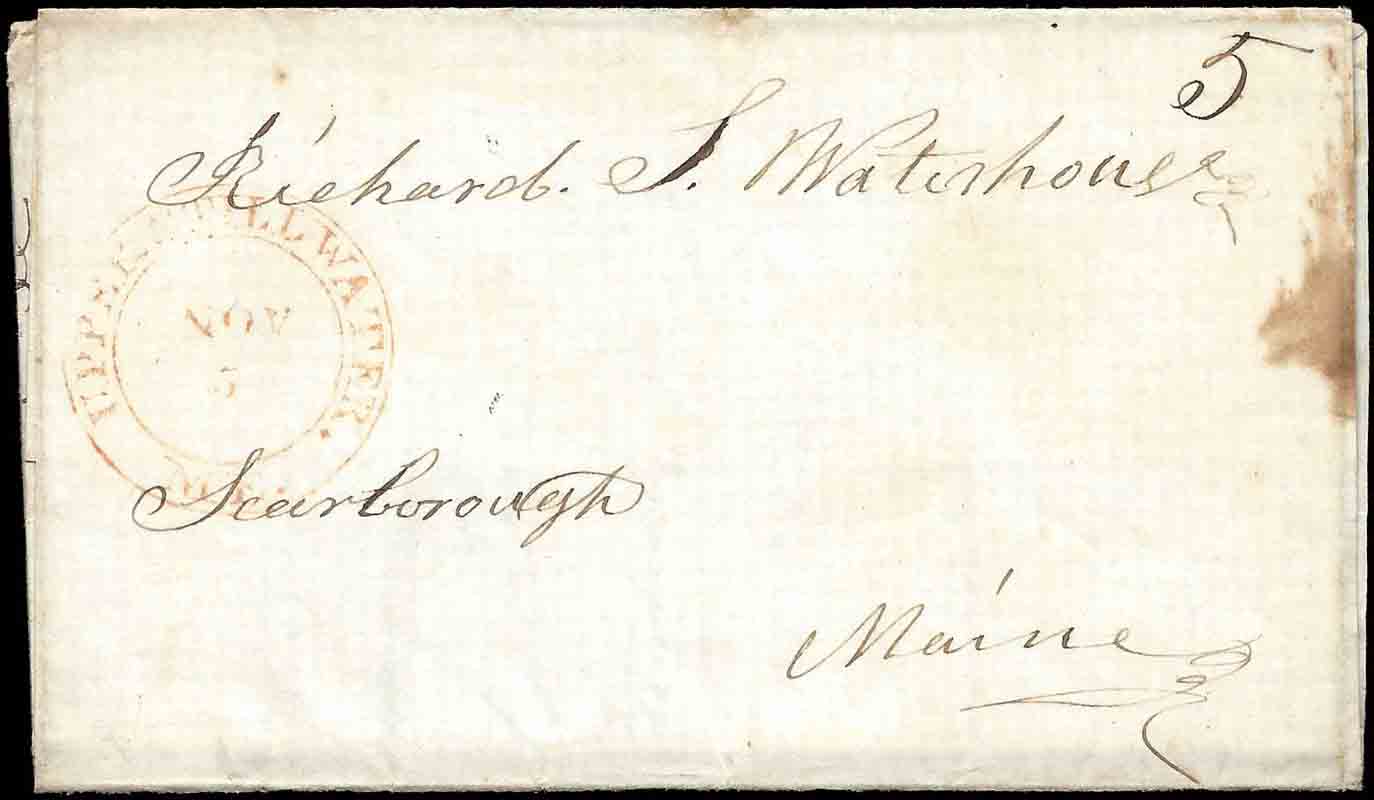 5
Richard. S. Waterhouse
UPPER STILLWATER.
NOV
5
Scarborough
Maine